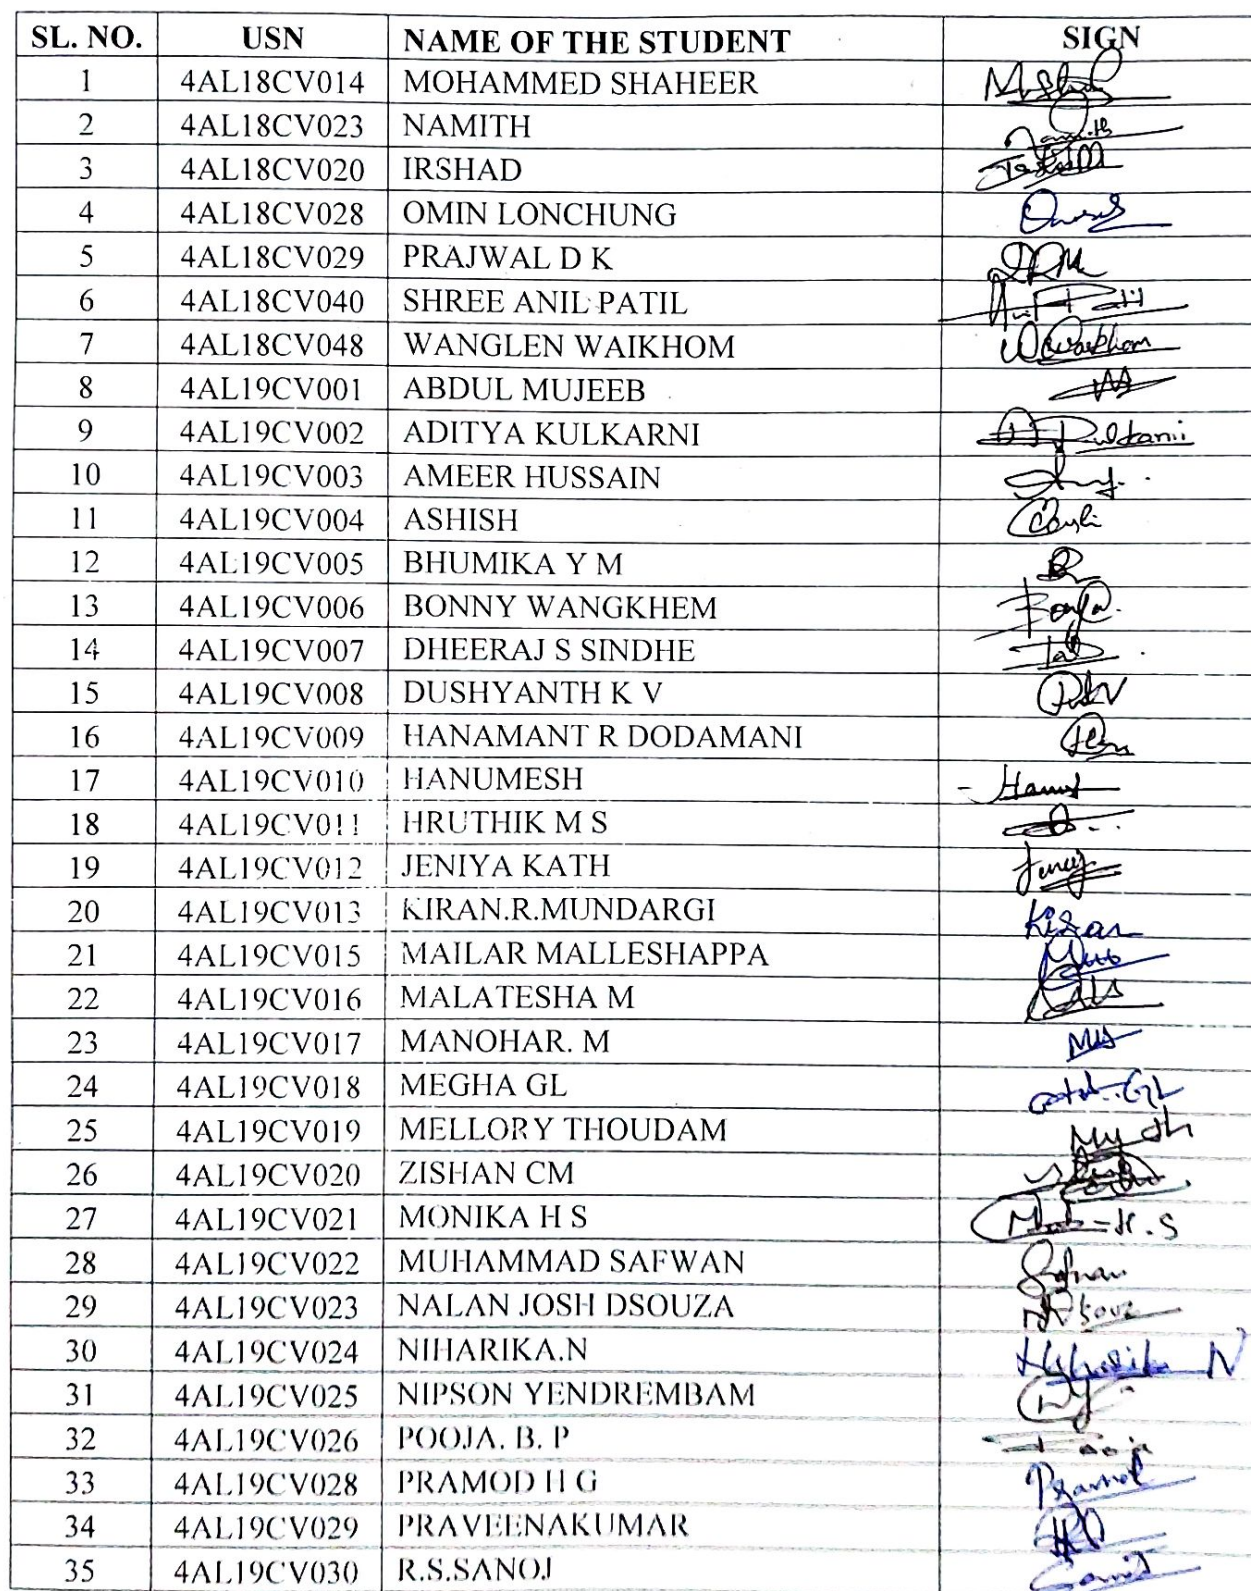 SL. NO. USN NAME OF THE STUDENT SIGN
1 4AL18CV014 MOHAMMED SHAHEER
2 4AL18CV023 NAMITH
3 4AL18CV020 IRSHAD
4 4AL18CV028 OMIN LONCHUNG
5 4AL18CV029 PRAJWAL D K
6 4AL18CV040 SHREE ANIL PATIL
7 4AL18CV048 WANGLEN WAIKHOM W Waikhom
8 4AL19CV001 ABDUL MUJEEB
9 4AL19CV002 ADITYA KULKARNI
10 4AL19CV003 AMEER HUSSAIN
11 4AL19CV004 ASHISH
12 4AL19CV005 BHUMIKA Y M
13 4AL19CV006 BONNY WANGKHEM
14 4AL19CV007 DHEERAJ S SINDHE
15 4AL19CV008 DUSHYANTH K V
16 4AL19CV009 HANAMANT R DODAMANI
17 4AL19CV010 HANUMESH
18 4AL19CV011 HRUTHIK M S
19 4AL19CV012 JENIYA KATH
20 4AL19CV013 KIRAN.R.MUNDARGI Kiran
21 4AL19CV015 MAILAR MALLESHAPPA
22 4AL19CV016 MALATESHA M
23 4AL19CV017 MANOHAR. M
24 4AL19CV018 MEGHA GL
25 4AL19CV019 MELLORY THOUDAM
26 4AL19CV020 ZISHAN CM
27 4AL19CV021 MONIKA H S
28 4AL19CV022 MUHAMMAD SAFWAN
29 4AL19CV023 NALAN JOSH DSOUZA
30 4AL19CV024 NIHARIKA.N
31 4AL19CV025 NIPSON YENDREMBAM
32 4AL19CV026 POOJA. B. P Pooja
33 4AL19CV028 PRAMOD H G Pramod
34 4AL19CV029 PRAVEENAKUMAR
35 4AL19CV030 R.S.SANOJ